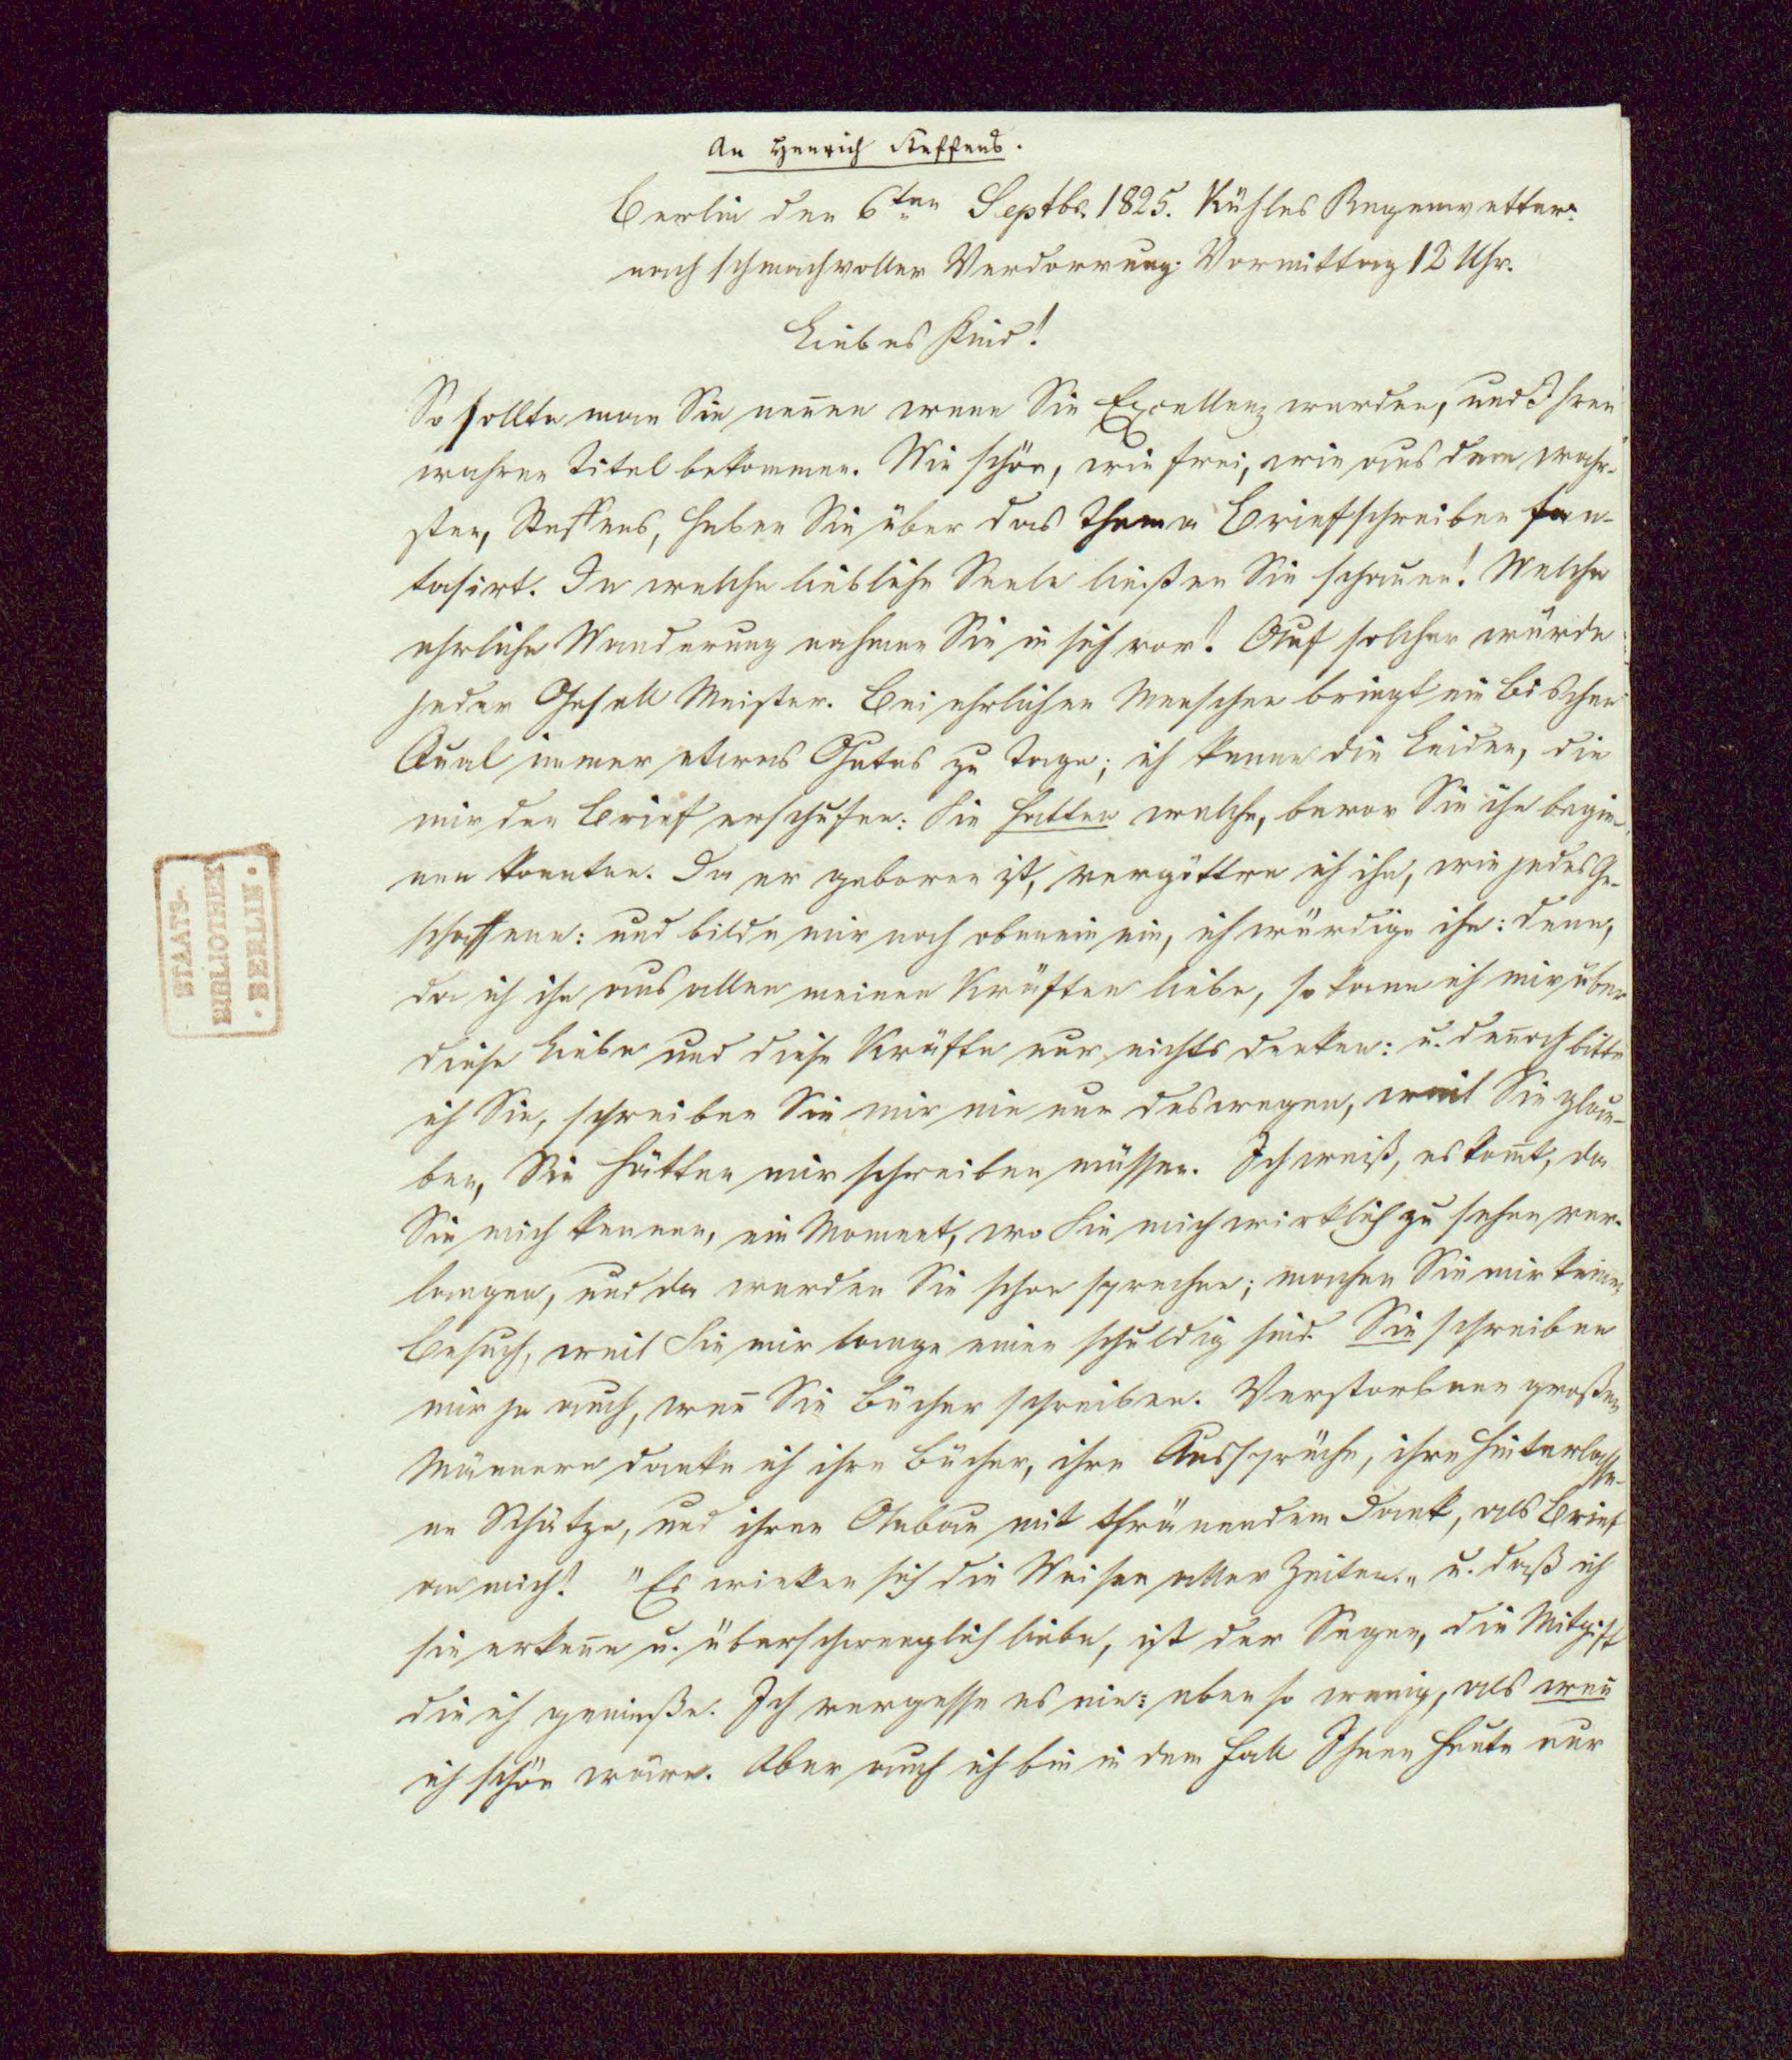 An Henrich Steffens.
Berlin den 6ten Septbr. 1825. Kühles Regenwetter.
nach schmachvoller Verdorrung. Vormittag 12 Uhr.
Liebes Kind!
So sollte man Sie nennen wenn Sie Excellenz werden, und Ihren
wahren Titel bekommen. Wie schön, wie frei, wie aus dem wahr-
sten, Steffens, haben Sie über das Thema Briefschreiben fan-
tasirt. In welche liebliche Seele ließen Sie schauen! Welche
ehrliche Wanderung nahmen Sie in sich vor! Auf solcher würde
jeder Gesell Meister. Bei ehrlichen Menschen bringt ein Bischen
Qual immer etwas Gutes zu Tage; ich kenne die Leiden, die
mir den Brief erschufen: Sie hatten welche, bevor Sie ihn begin-
nen konnten. Da er geboren ist, vergöttre ich ihn, wie jedes Ge-
schaffene: und bilde mir noch obenein ein, ich würdige ihn: denn,
da ich ihn aus allen meinen Kräften liebe, so kann ich mir über
diese Liebe und diese Kräfte nur nichts denken: u. dennoch bitte
ich Sie, schreiben Sie mir nie nur deswegen, weil Sie glau-
ben, Sie hätten mir schreiben müssen. Ich weiß, es kommt, da
Sie mich kennen, ein Moment, wo Sie mich wirklich zu sehen ver-
langen, und da werden Sie schon sprechen; machen Sie mir keinen
Besuch, weil Sie mir lange einen schuldig sind. Sie schreiben
mir ja auch, wenn Sie Bücher schreiben. Verstorbenen großen
Männern danke ich ihre Bücher, ihre Aussprüche, ihre hinterlasse-
ne Schätze, und ihren Anbau mit thränendem Dank, als Brief
an mich! "Es winken sich die Weisen aller Zeiten." u. daß ich
sie erkenne u. überschwenglich liebe, ist der Segen, die Mitgift
die ich genieße. Ich vergesse es nie: eben so wenig, als wenn
ich schön wäre. Aber auch ich bin in dem Fall Ihnen heute nur
STAATS-
BIBLIOTHEK
· BERLIN ·